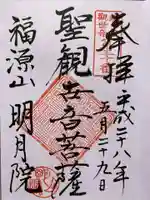 奉拝
平成二十八年
五月二十九日
聖観世音菩薩
福源山
明月院